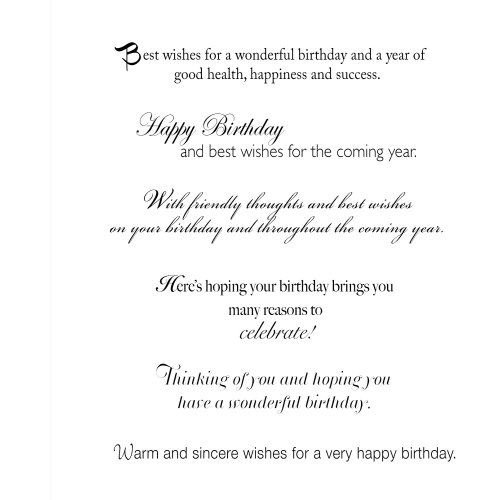 Best wishes for a wonderful birthday and a year of
good health, happiness and success.
Happy Birthday
and best wishes for the coming year.
With friendly thoughts and best wishes
on your birthday and throughout the coming year.
Here's hoping your birthday brings you
many reasons to
celebrate!
Thinking of you and hoping you
have a wonderful birthday.
Warm and sincere wishes for a very happy birthday.